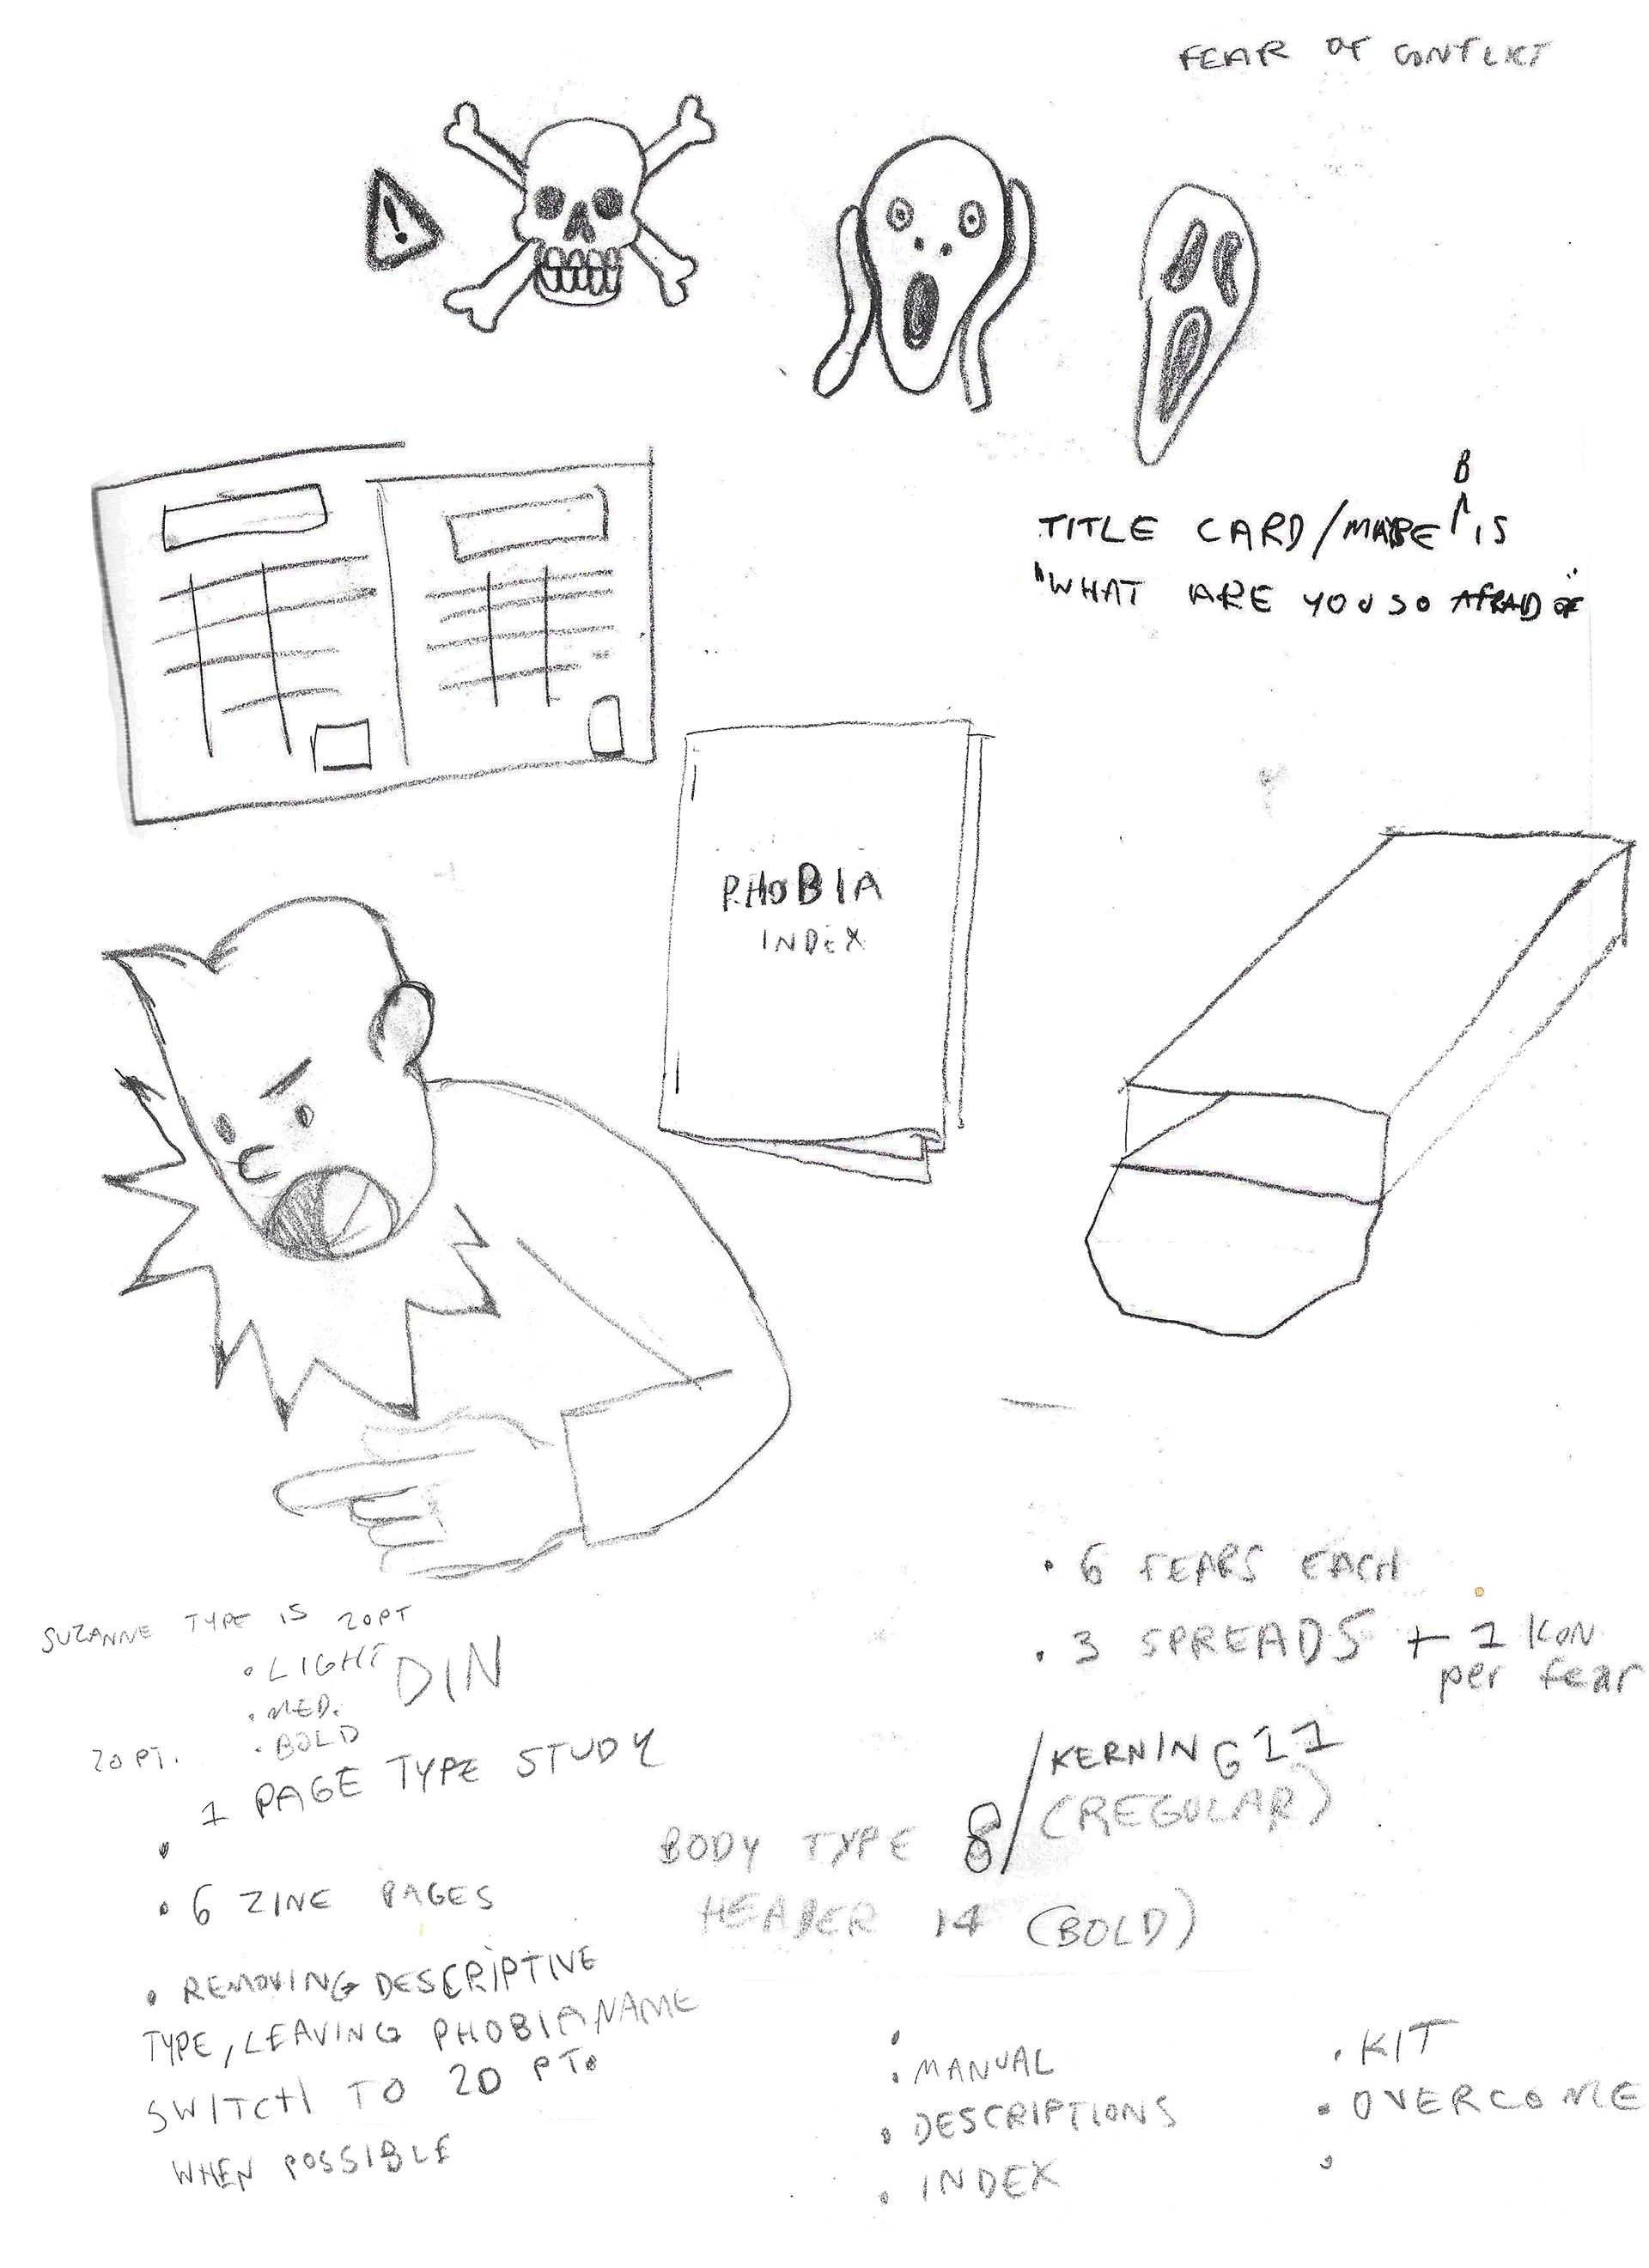 FEAR OF CONFLICT
!
B
TITLE CARD/MAYBE ^ IS
"WHAT ARE YOU SO AFRAID OF"
PHOBIA
INDEX
• 6 FEARS EACH
• 3 SPREADS + 1 ICON
per fear
SUZANNE TYPE IS 20PT
• LIGHT DIN
• MED.
20 PT. • BOLD
1 PAGE TYPE STUDY
•
/KERNING 11
BODY TYPE 8 (REGULAR)
HEADER 14 (BOLD)
• 6 ZINE PAGES
• REMOVING DESCRIPTIVE
TYPE, LEAVING PHOBIA NAME
SWITCH TO 20 PT.
WHEN POSSIBLE
• MANUAL
• DESCRIPTIONS
• INDEX
• KIT
• OVERCOME
•